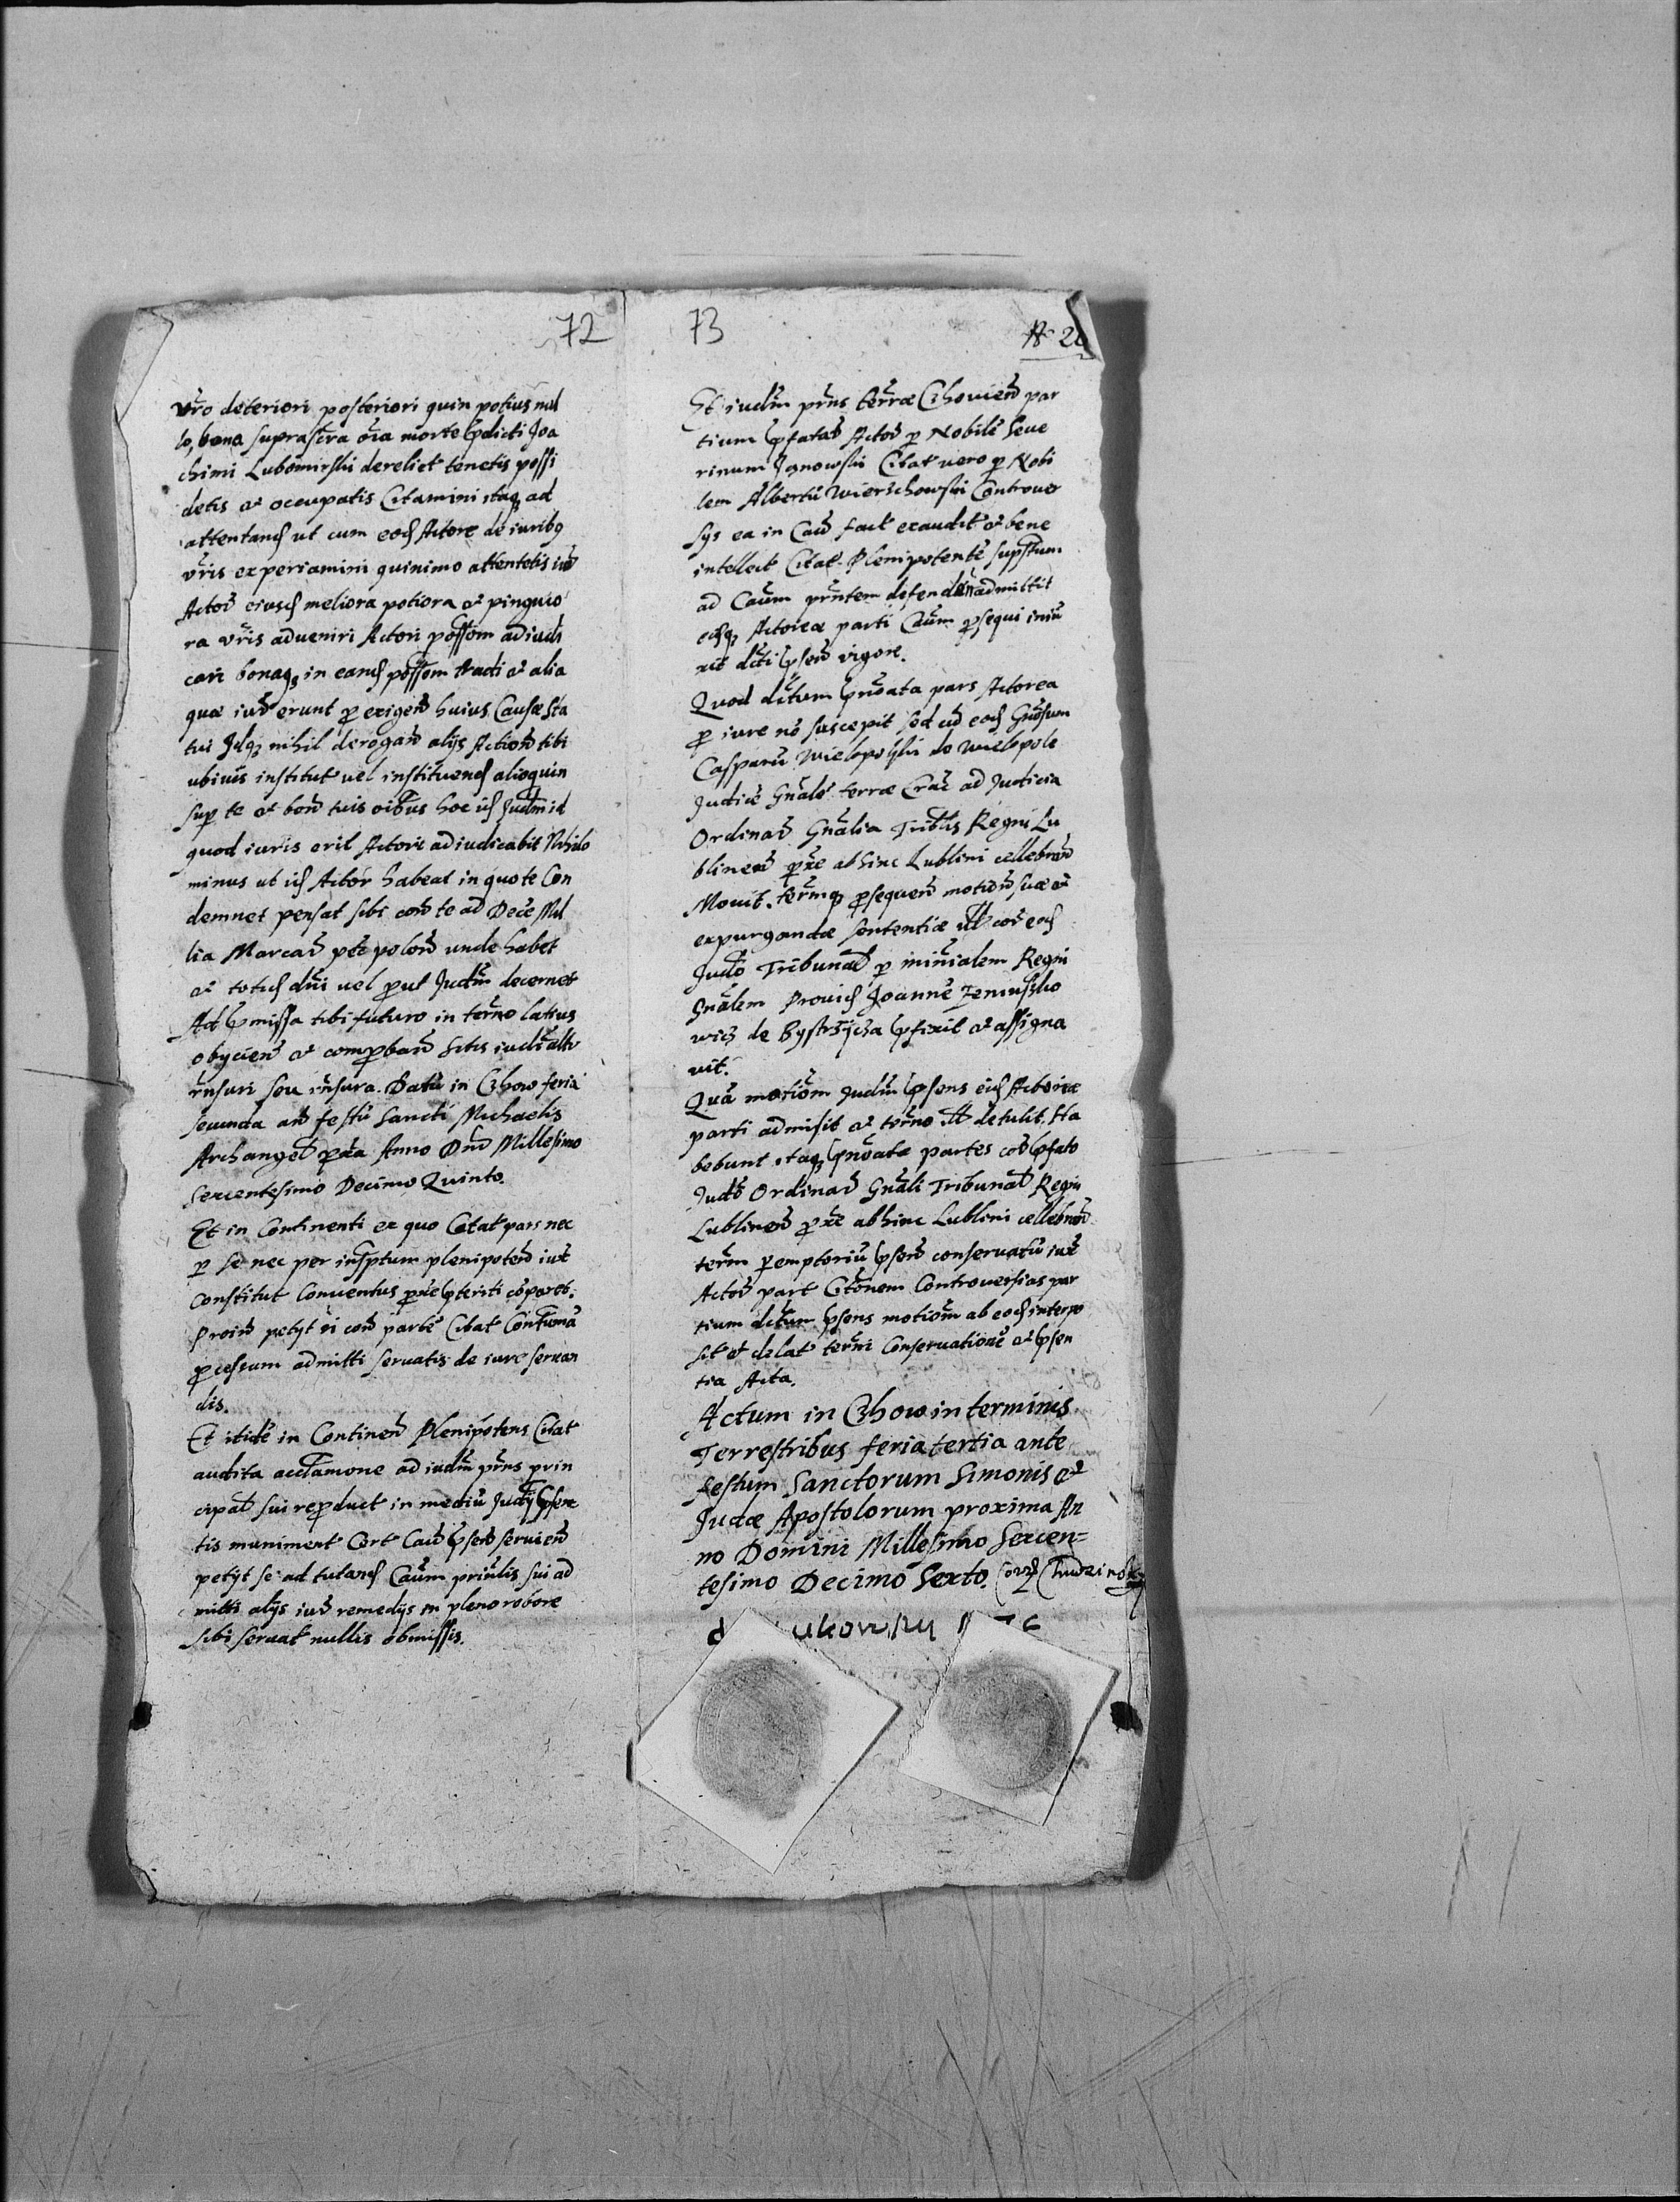 72
vr̃o deteriori posteriori quin potius nul
lo, bona suprascr̃a oĩa morte p̃dicti Joa
chimi Lubomirski derelict tenetis possi
detis et occupatis Citamini itaq̃ ad
attentand ut cum eod Actore de iurib9
vr̃is experiamini quinimo attentetis iur̃
Actor̃ eiusd meliora potiora et pinguio
ra vr̃is adveniri Actori possom̃ adiudi
cari bonaq̃ in eand possom̃ tradi et alia
quæ iur̃ erunt p̃ exigen̄ huius Causæ sta
tui Idq̃ nihil derogan̄ alijs Action̄ tibi
ubivis institut vel instituend alioquin
sup te et bon̄ tuis oib̃us hoc id Judm̃ id
quod iuris erit Actori adiudicabit Nihilo
minus ut id Actor habeat in quo te Con
demnet pensat sibi con̄ te ad Decẽ Mil
lia Marcar̃ pec̃ polon̄ unde habet
et totid dñi vel prout Judm̃ decernet
Ad p̃missa tibi futuro in ter̃no latius
obijcien̄ et comproban̄ Sitis iudĩalir̃
rñsuri seu rñsura. Datũ in Czhow feria
secunda an̄ festũ Sancti Michaelis
Archangel prox̃a Anno Dñi Millesimo
Sexcentesimo Decimo Quinto.
Et in Continenti ex quo Citat pars nec
p se nec per insc̃ptum plenipoten̄ iuxt
constitut Conventus prox̃e p̃teriti cõparet.
Proin̄ petyt ĩ con̄ partẽ Citat Contumã
processum admitti servatis de iure servan
dis.
Et itidẽ in Continen̄ Plenipotens Citat
audita acclamone ad iudm̃ prñs prin
cipal sui reproduct in mediũ Judij p̃sen
tis muniment Cert Caus̃ p̃sen̄ servien̄
petyt se ad tutand Caũm prin̄lis sui ad
mitti alijs iur̃ remedijs in pleno robore
sibi servat nullis obmissis.
73
Et iudm̃ prñs terræ Czhovien̄ par
tium p̃fatar̃ Actor̃ p Nobilẽ Seve
rinum Janowski Citat vero p Nobi
lem Albertũ Wierzchowski Controver
sys ea in Caus̃ fact exaudit et bene
intellect Citat. Plenipotentẽ supsc̃tum
ad Caũm prñtem defendend admittit
eidq̃ Actoreæ parti Caũm p̃sequi iniũ
xit decti p̃sen̄ vigore.
Quod dectum p̃noata pars Actorea
p̃ iure nõ suscepit sed cũ eod Gnõsum
Casparũ Wielopolski de Wielopole
Judicẽ Gnãlẽ terræ Crac̃ ad Judicia
Ordinar̃ Gnãlia Trib̃lis Regni Lu
blinen̄ prox̃e abhinc Lublini cellebran̄
Movit. ter̃mq̃ p̃sequen̄ motion̄ suæ et
expurgandæ sententiæ coram eod
Judõ Tribunal p miniãlem Regni
Gnãlem Provid Joannẽ Zemuszko
wicz de Bystrzycza p̃fixit et assigna
vit.
Quã motiom̃ Judm̃ p̃sens eid Actoreæ
parti admisit et ter̃no detulit. Ha
bebunt itaq̃ p̃noatæ partes cor̃ p̃fato
Judõ Ordinar̃ Gnãli Tribunal Regni
Lublinen̄ prox̃e abhinc Lublini cellebran̄
ter̃m peremptoriũ p̃sen̄ conservatũ iuxt
Actor̃ part Citõnem Controversias par
tium dectum p̃sens motiom̃ ab eod interpo
sit et delat ter̃mi Conservationẽ et p̃sen
tia Acta.
Actum in Czhow in terminis
Terrestribus feria tertia ante
festum Sanctorum Simonis et
Judæ Apostolorum proxima An
no Domini Millesimo Sexcen-
tesimo Decimo Sexto.